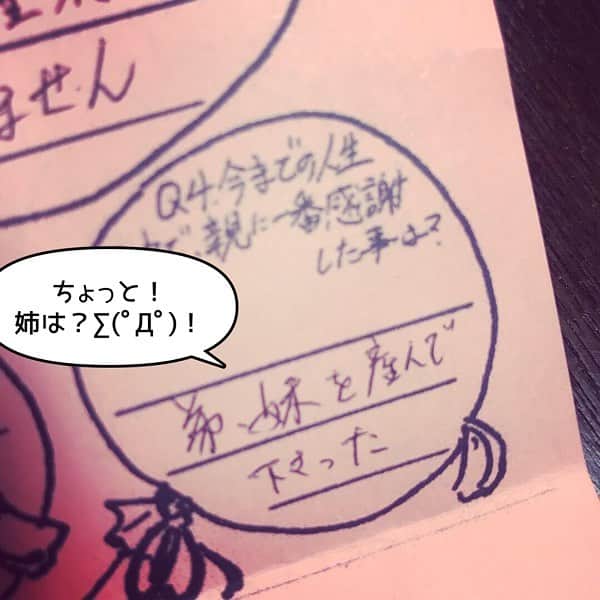 ません
Q4.今までの人生
で、親に一番感謝
した事は？
ちょっと！
姉は？∑(ﾟДﾟ)！
弟、妹を産んで
下さった